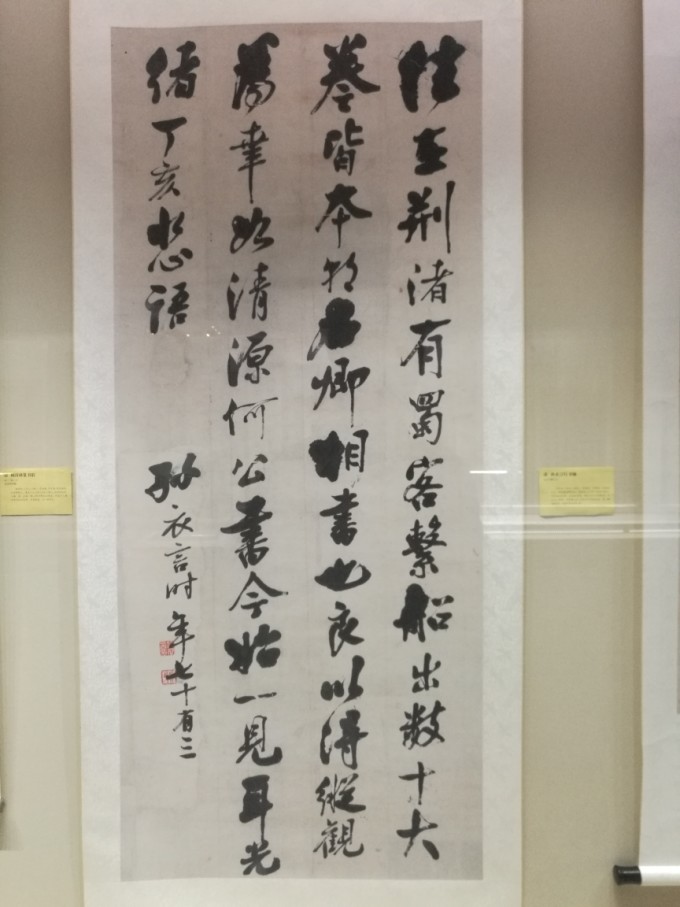 往在荆渚有蜀客繫船出數十大
卷皆本朝名卿相書也良以得縱觀
為幸如清源何公書今始一見耳光
緒丁亥 語
孫衣言时年七十有三